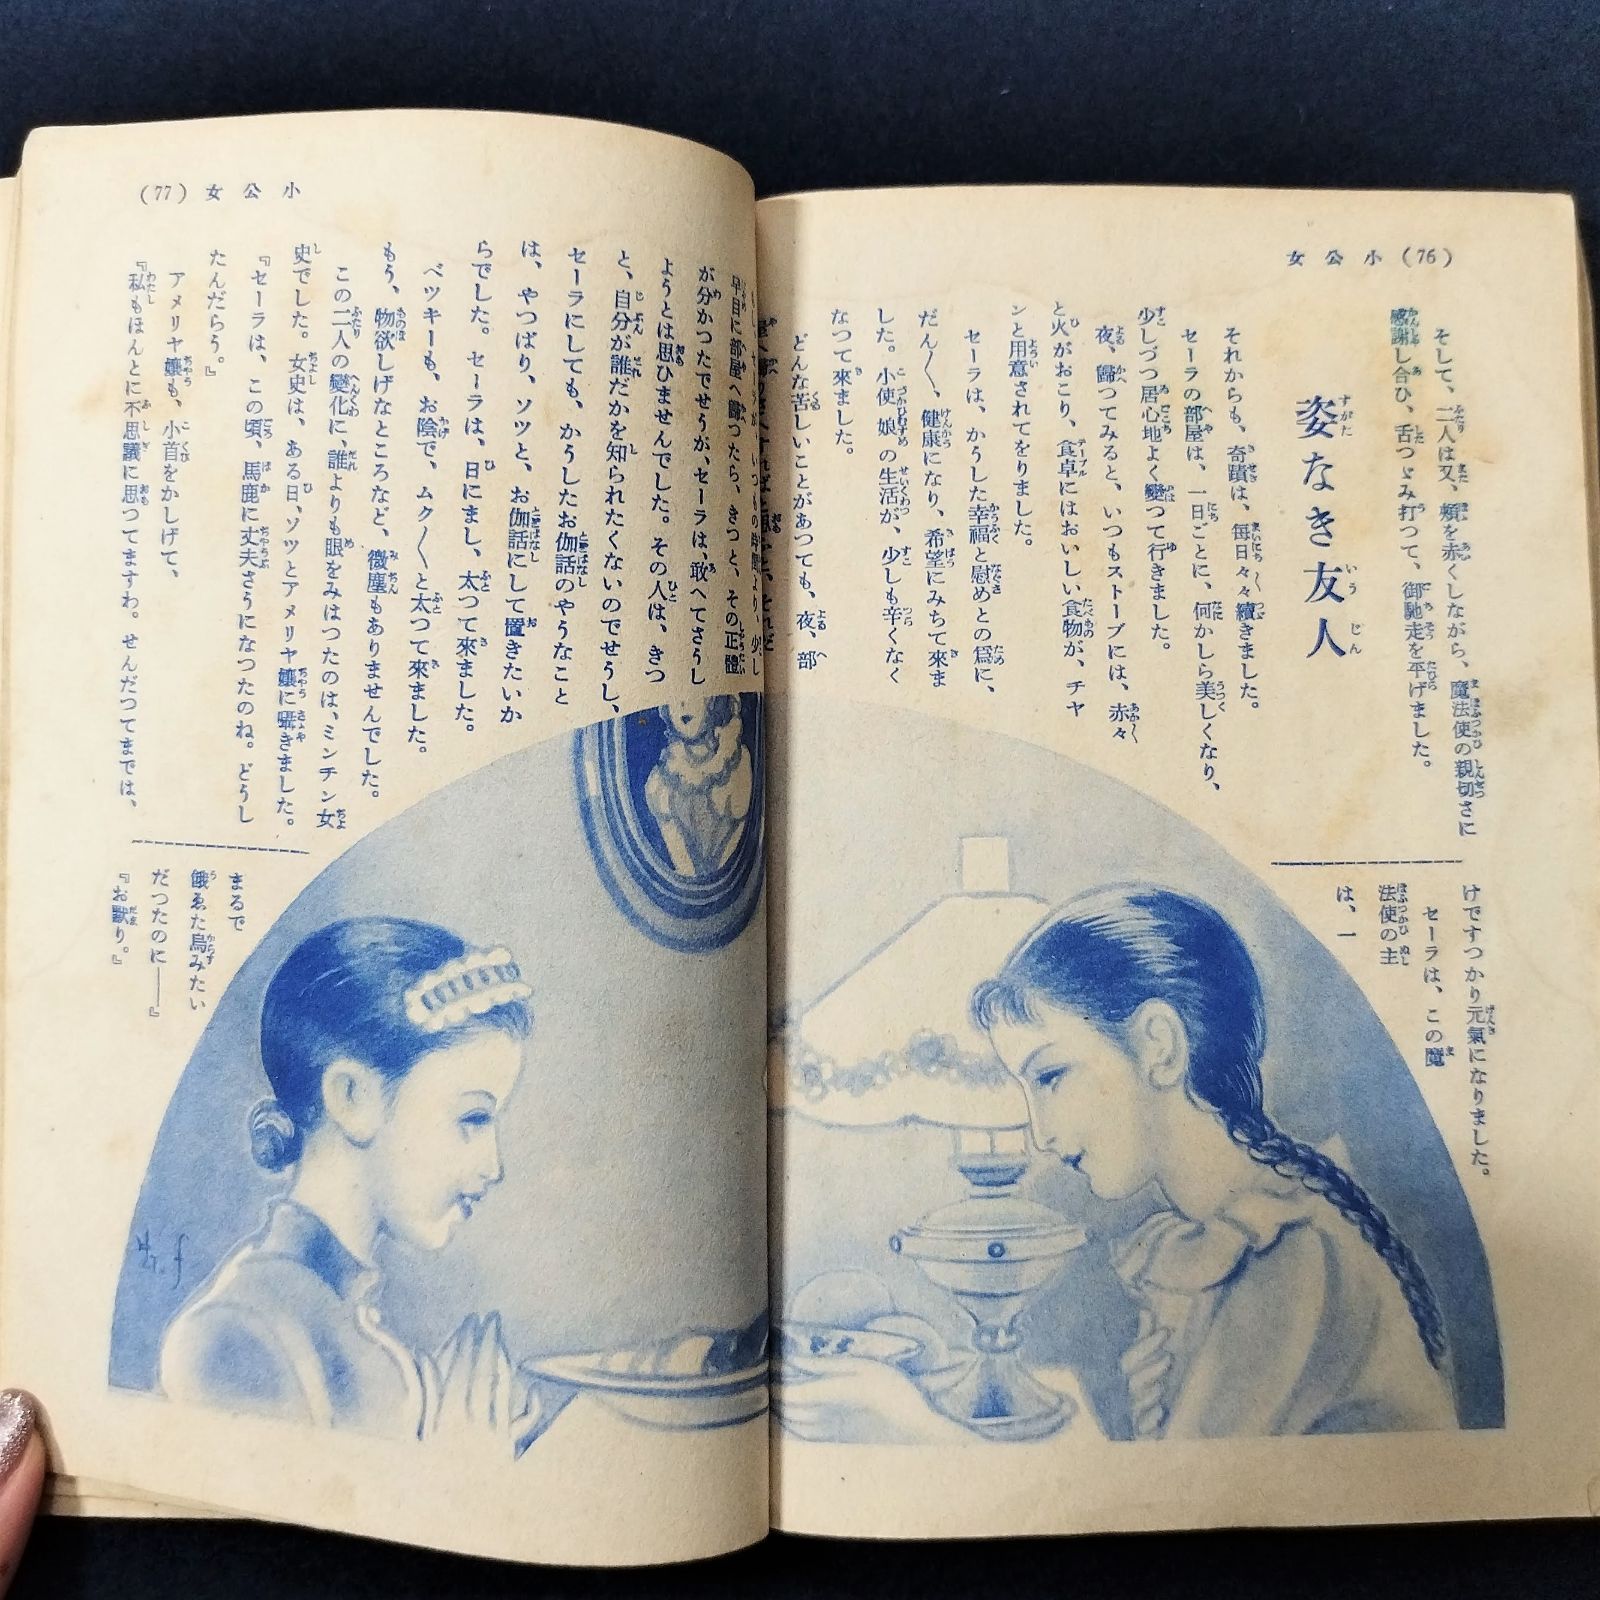 小公女 (76)
そして、二人は又、頬を赤くしながら、魔法使の親切さに
感謝し合ひ、舌つゞみ打つて、御馳走を平げました。
姿なき友人
それからも、奇蹟は、毎日々々續きました。
セーラの部屋は、一日ごとに、何かしら美しくなり、
少しづつ居心地よく變つて行きました。
夜、歸つてみると、いつもストーブには、赤々
と火がおこり、食卓にはおいしい食物が、チヤ
ンと用意されてをりました。
セーラは、かうした幸福と慰めとの爲に、
だん〱、健康になり、希望にみちて來ま
した。小使娘の生活が、少しも辛くなく
なつて來ました。
どんな苦しいことがあつても、夜、部
けですつかり元氣になりました。
セーラは、この魔
法使の主
は、一
小公女 (77)
早目に部屋へ歸つたら、きつと、その正體
が分かつたでせうが、セーラは、敢へてさうし
ようとは思ひませんでした。その人は、きつ
と、自分が誰だかを知られたくないのでせうし、
セーラにしても、かうしたお伽話のやうなこと
は、やつぱり、ソツと、お伽話にして置きたいか
らでした。セーラは、日にまし、太つて來ました。
ベツキーも、お陰で、ムク〱と太つて來ました。
もう、物欲しげなところなど、微塵もありませんでした。
この二人の變化に、誰よりも眼をみはつたのは、ミンチン女
史でした。女史は、ある日、ソツとアメリヤ孃に囁きました。
『セーラは、この頃、馬鹿に丈夫さうになつたのね。どうし
たんだらう。』
アメリヤ孃も、小首をかしげて、
『私もほんとに不思議に思つてますわ。せんだつてまでは、
まるで
餓ゑた烏みたい
だつたのに――』
『お默り。』